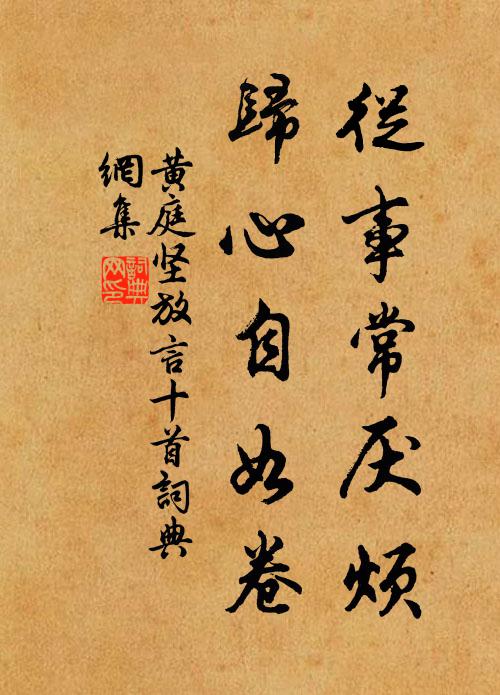 從事常厌煩
歸心自如卷
黄庭坚放言十首詞典
網集
詞典
网印